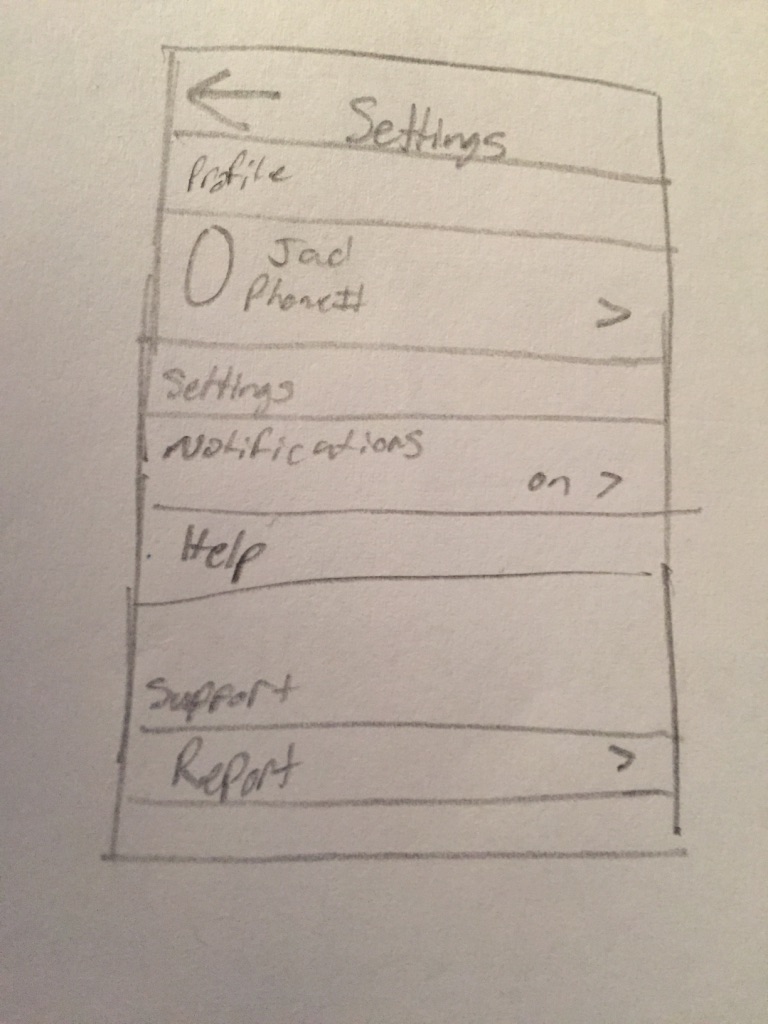 Settings
Profile
Jad
Phone#
>
Settings
Notifications
on >
Help
Support
Report >